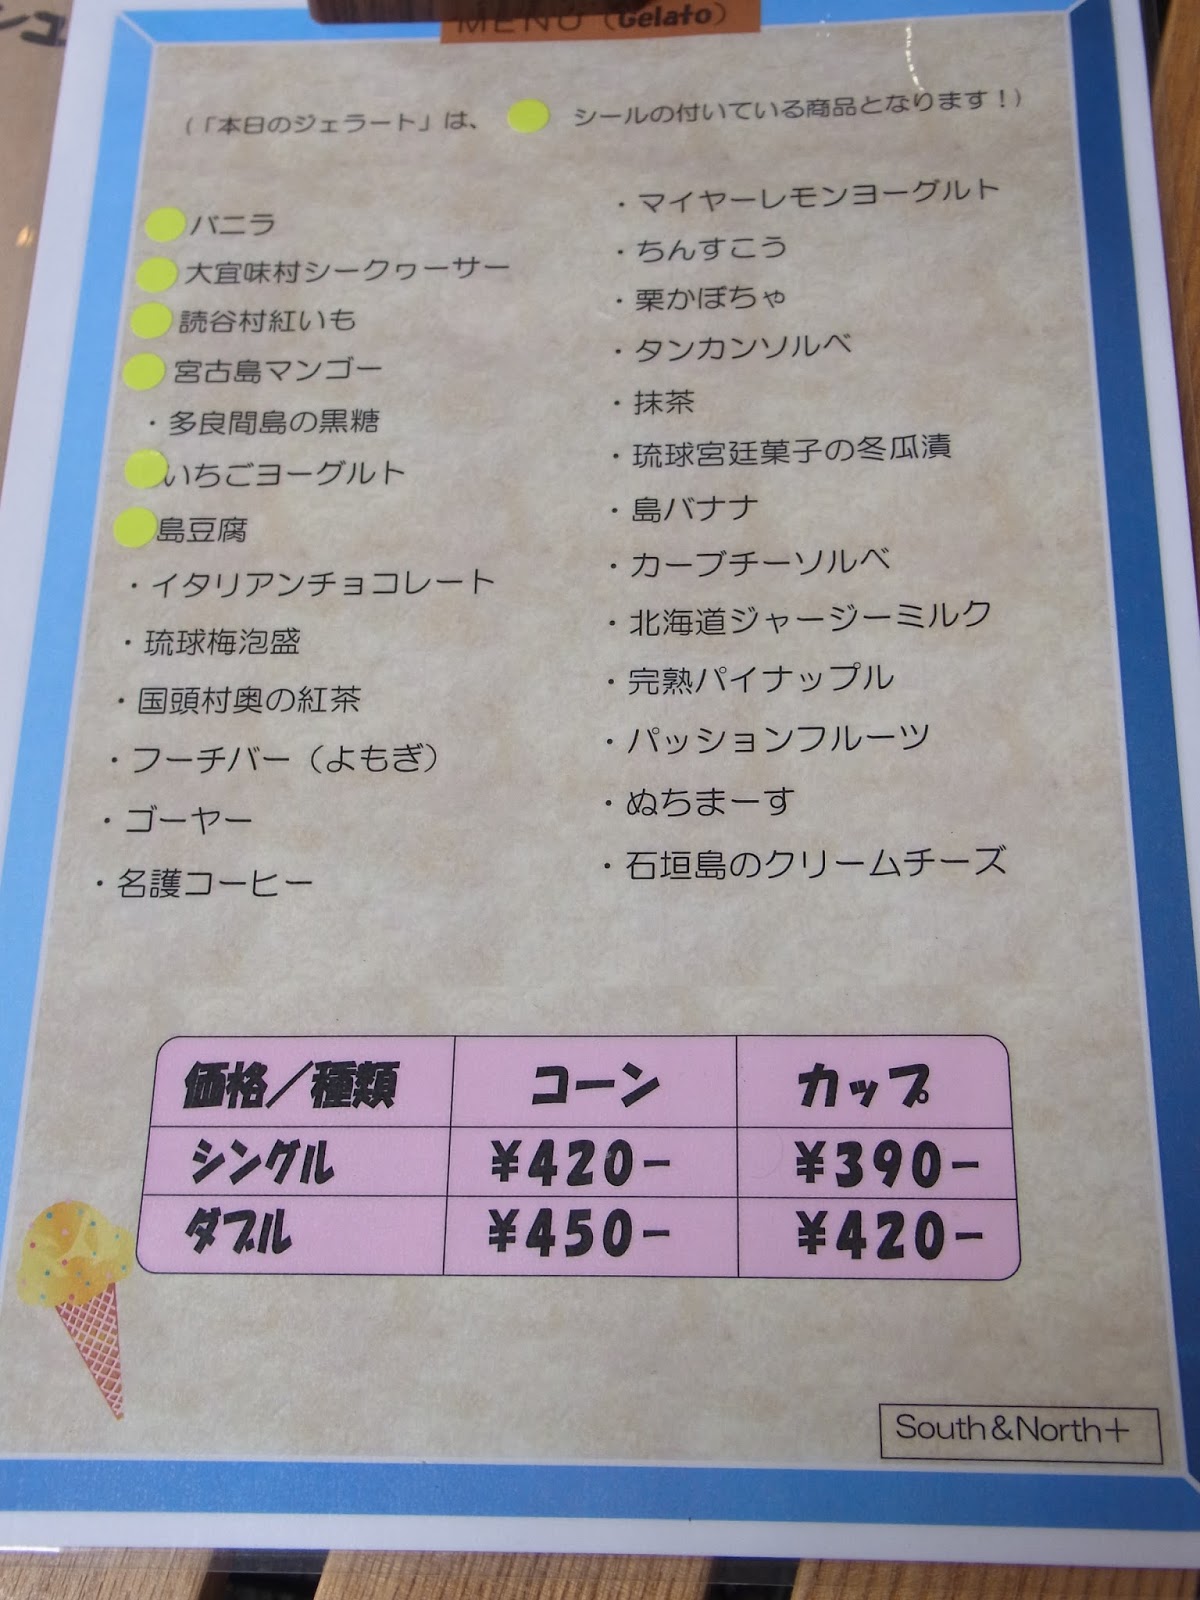 MENU (Gelato)
(「本日のジェラート」は、 シールの付いている商品となります!)
バニラ
大宜味村シークヮーサー
読谷村紅いも
宮古島マンゴー
・多良間島の黒糖
いちごヨーグルト
島豆腐
・イタリアンチョコレート
・琉球梅泡盛
・国頭村奥の紅茶
・フーチバー(よもぎ)
・ゴーヤー
・名護コーヒー
・マイヤーレモンヨーグルト
・ちんすこう
・栗かぼちゃ
・タンカンソルベ
・抹茶
・琉球宮廷菓子の冬瓜漬
・島バナナ
・カーブチーソルベ
・北海道ジャージーミルク
・完熟パイナップル
・パッションフルーツ
・ぬちまーす
・石垣島のクリームチーズ
価格/種類 コーン カップ
シングル ¥420- ¥390-
ダブル ¥450- ¥420-
South&North+